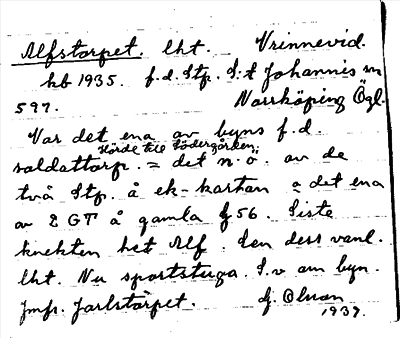 Alfstorpet. lht. Vrinnevid.
hb 1935. f.d. Stp. S:t Johannis sn
597. Norrköping Ögl.
Var det ena av byns f.d.
Hörde till Södergården;
soldattorp. = det n. ö. av de
två Stp. å ek-kartan = det ena
av 2 GT å gamla f 56. Siste
knekten het Alf. Den dess vanl.
lht. Nu sportstuga. S.v. om byn.
Jmfr. Jarlstorpet. G. Olsson
1937.